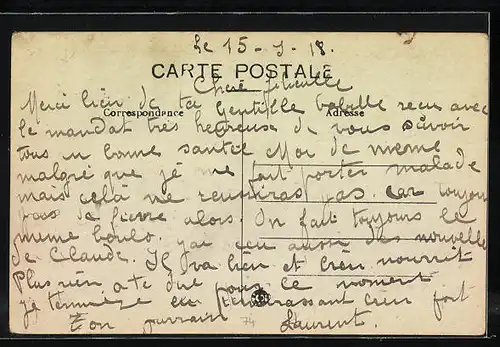 Le 15-1-18.
CARTE POSTALE
Chère filleulle
Merci bien de ta gentille babelle recu avec
Correspondance
Adresse
le mandat très heureuse de vous savoir
tous en bonne santée Moi de meme
malgré que je me fait porter malade
mais celà ne reussiras pas. car toujour
pas de fievre alors. On fait toujours le
meme boulo. j'ai eu aussi des nouvelle
de Claude. Il va bien et bien nourrit
Plus rien a te dire pour le moment
je termine en t'embrassant bien fort
Ton parrain Laurent.
74